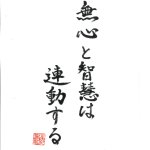 無心と智慧は
連動する